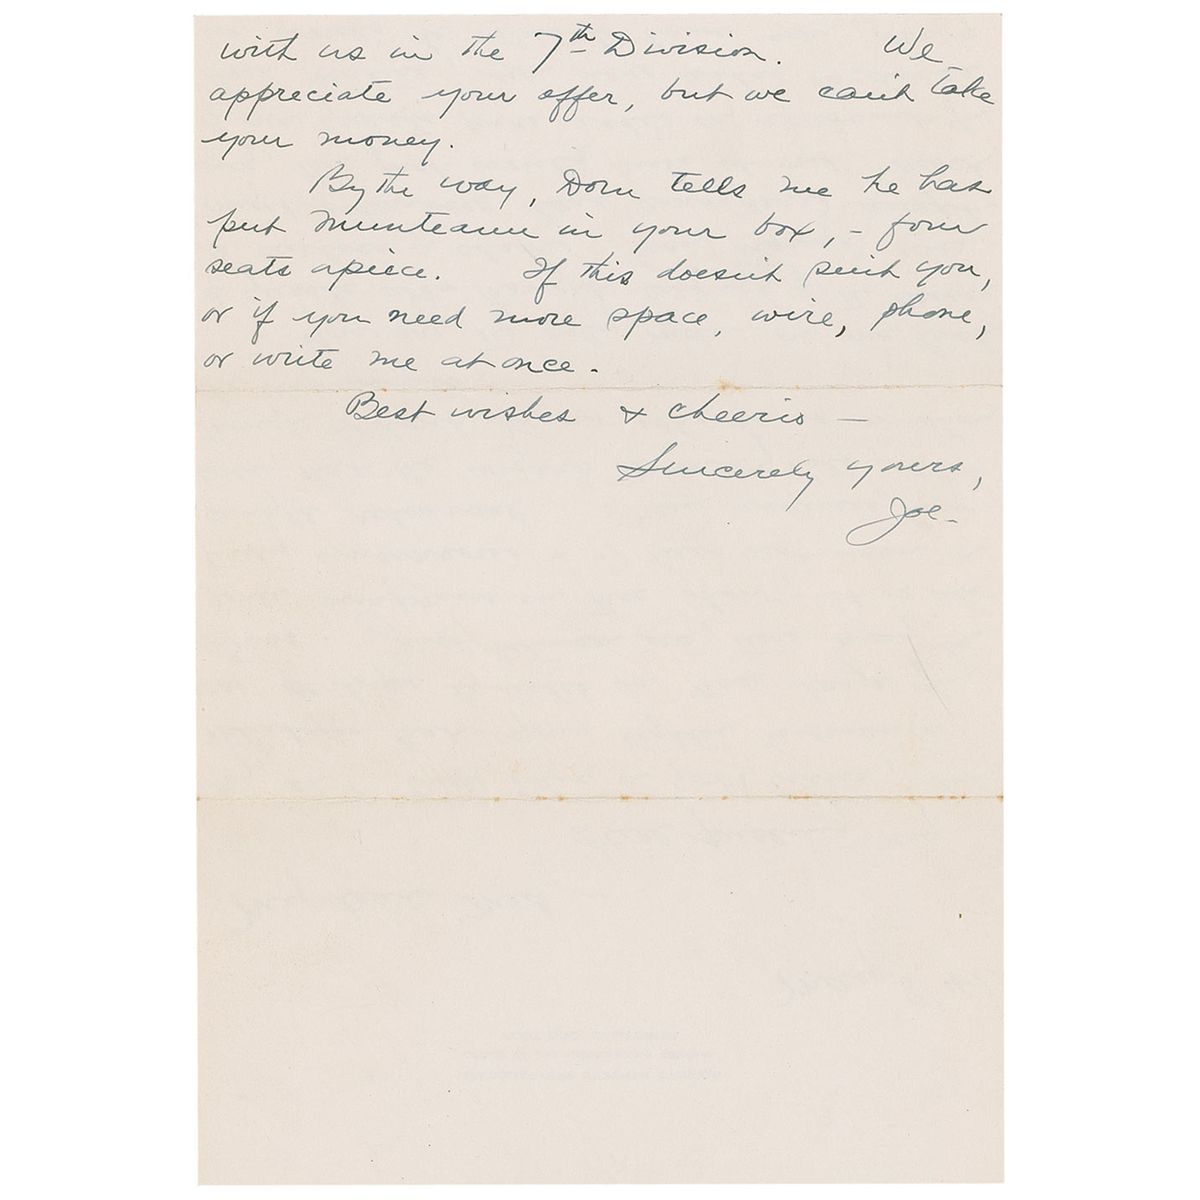 with us in the 7th Division. We
appreciate your offer, but we can't take
your money.
By the way, Dorn tells me he has
put Munteanu in your box, – four
seats apiece. If this doesn't suit you,
or if you need more space, wire, phone,
or write me at once.
Best wishes & cheerio —
Sincerely yours,
Joe.